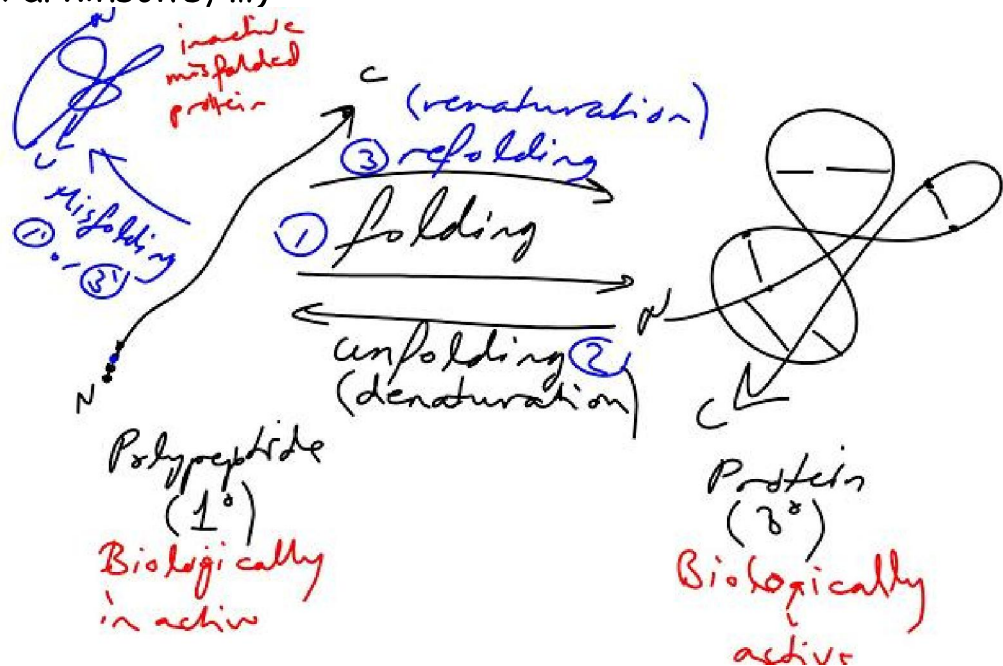 N
inactive
misfolded
protein
C
C
(renaturation)
③ refolding
Misfolding
①' or ③'
① folding
N
unfolding ②
(denaturation)
N
C
Polypeptide
(1°)
Biologically
inactive
Protein
(3°)
Biologically
active